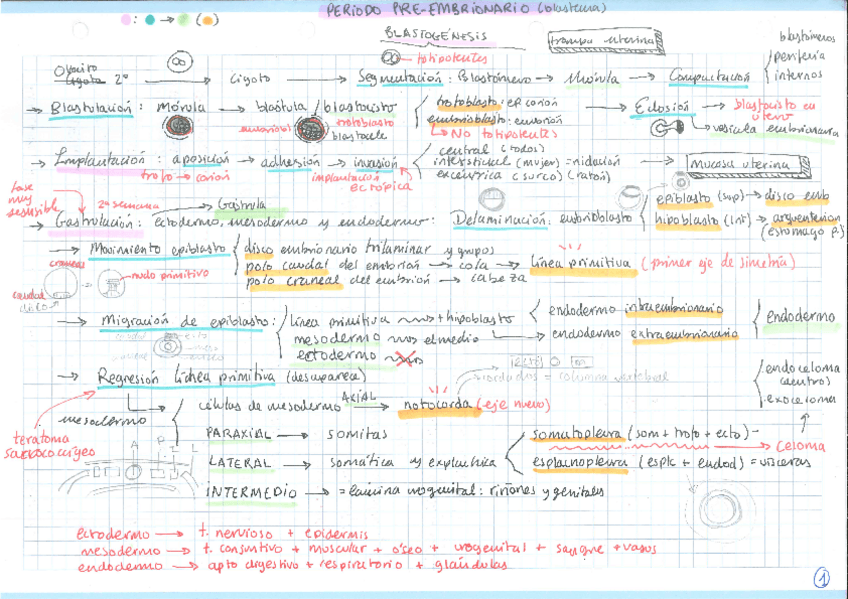 PERIODO PRE-EMBRIONARIO (blastema)
BLASTOGÉNESIS
trompa uterina
blastómeros
totipotentes
periferia
internos
Ovocito 2º → Cigoto → Segmentación: Blastómero → Mórula → Compactación
→ Blastulación: mórula → blástula / blastocisto
trofoblasto
blastocele
embriobl
trofoblasto: ep. corion
embrioblasto: embrión
No totipotentes
→ Eclosión → blastocisto en útero
vesícula embrionaria
→ Implantación: aposición → adhesión → invasión
trofo → corion
implantación ectópica
central (todos)
intersticial (mujer) = nidación
excéntrica (surco) (ratón)
→ Mucosa uterina
fase muy sensible
2ª semana
Gástrula
→ Gastrulación: ectodermo, mesodermo y endodermo:
Delaminación: embrioblasto
epiblasto (sup) → disco emb
hipoblasto (inf) → arquenterion
(estómago p.)
→ Movimiento epiblasto
disco embrionario trilaminar y grupos
polo caudal del embrión → cola → línea primitiva (primer eje de simetría)
polo craneal del embrión → cabeza
craneas
nudo primitivo
caudal
disco
→ Migración de epiblasto:
línea primitiva + hipoblasto
endodermo intraembrionario
endodermo extraembrionario
endodermo
mesodermo el medio
ectodermo
→ Regresión línea primitiva (desaparece)
teratoma sacrococcígeo
mesodermo
células de mesodermo AXIAL → notocorda (eje nuevo)
= columna vertebral
endoceloma (dentro)
exoceloma
PARAXIAL → somitas
LATERAL → somática y esplácnica
somatopleura (som + trofo + ecto)
esplacnopleura (esplc + endod) = vísceras
Celoma
INTERMEDIO → = lámina urogenital: riñones y genitales
A P L
ectodermo → t. nervioso + epidermis
mesodermo → t. conjuntivo + muscular + óseo + urogenital + sangre + vasos
endodermo → apto digestivo + respiratorio + glándulas
1